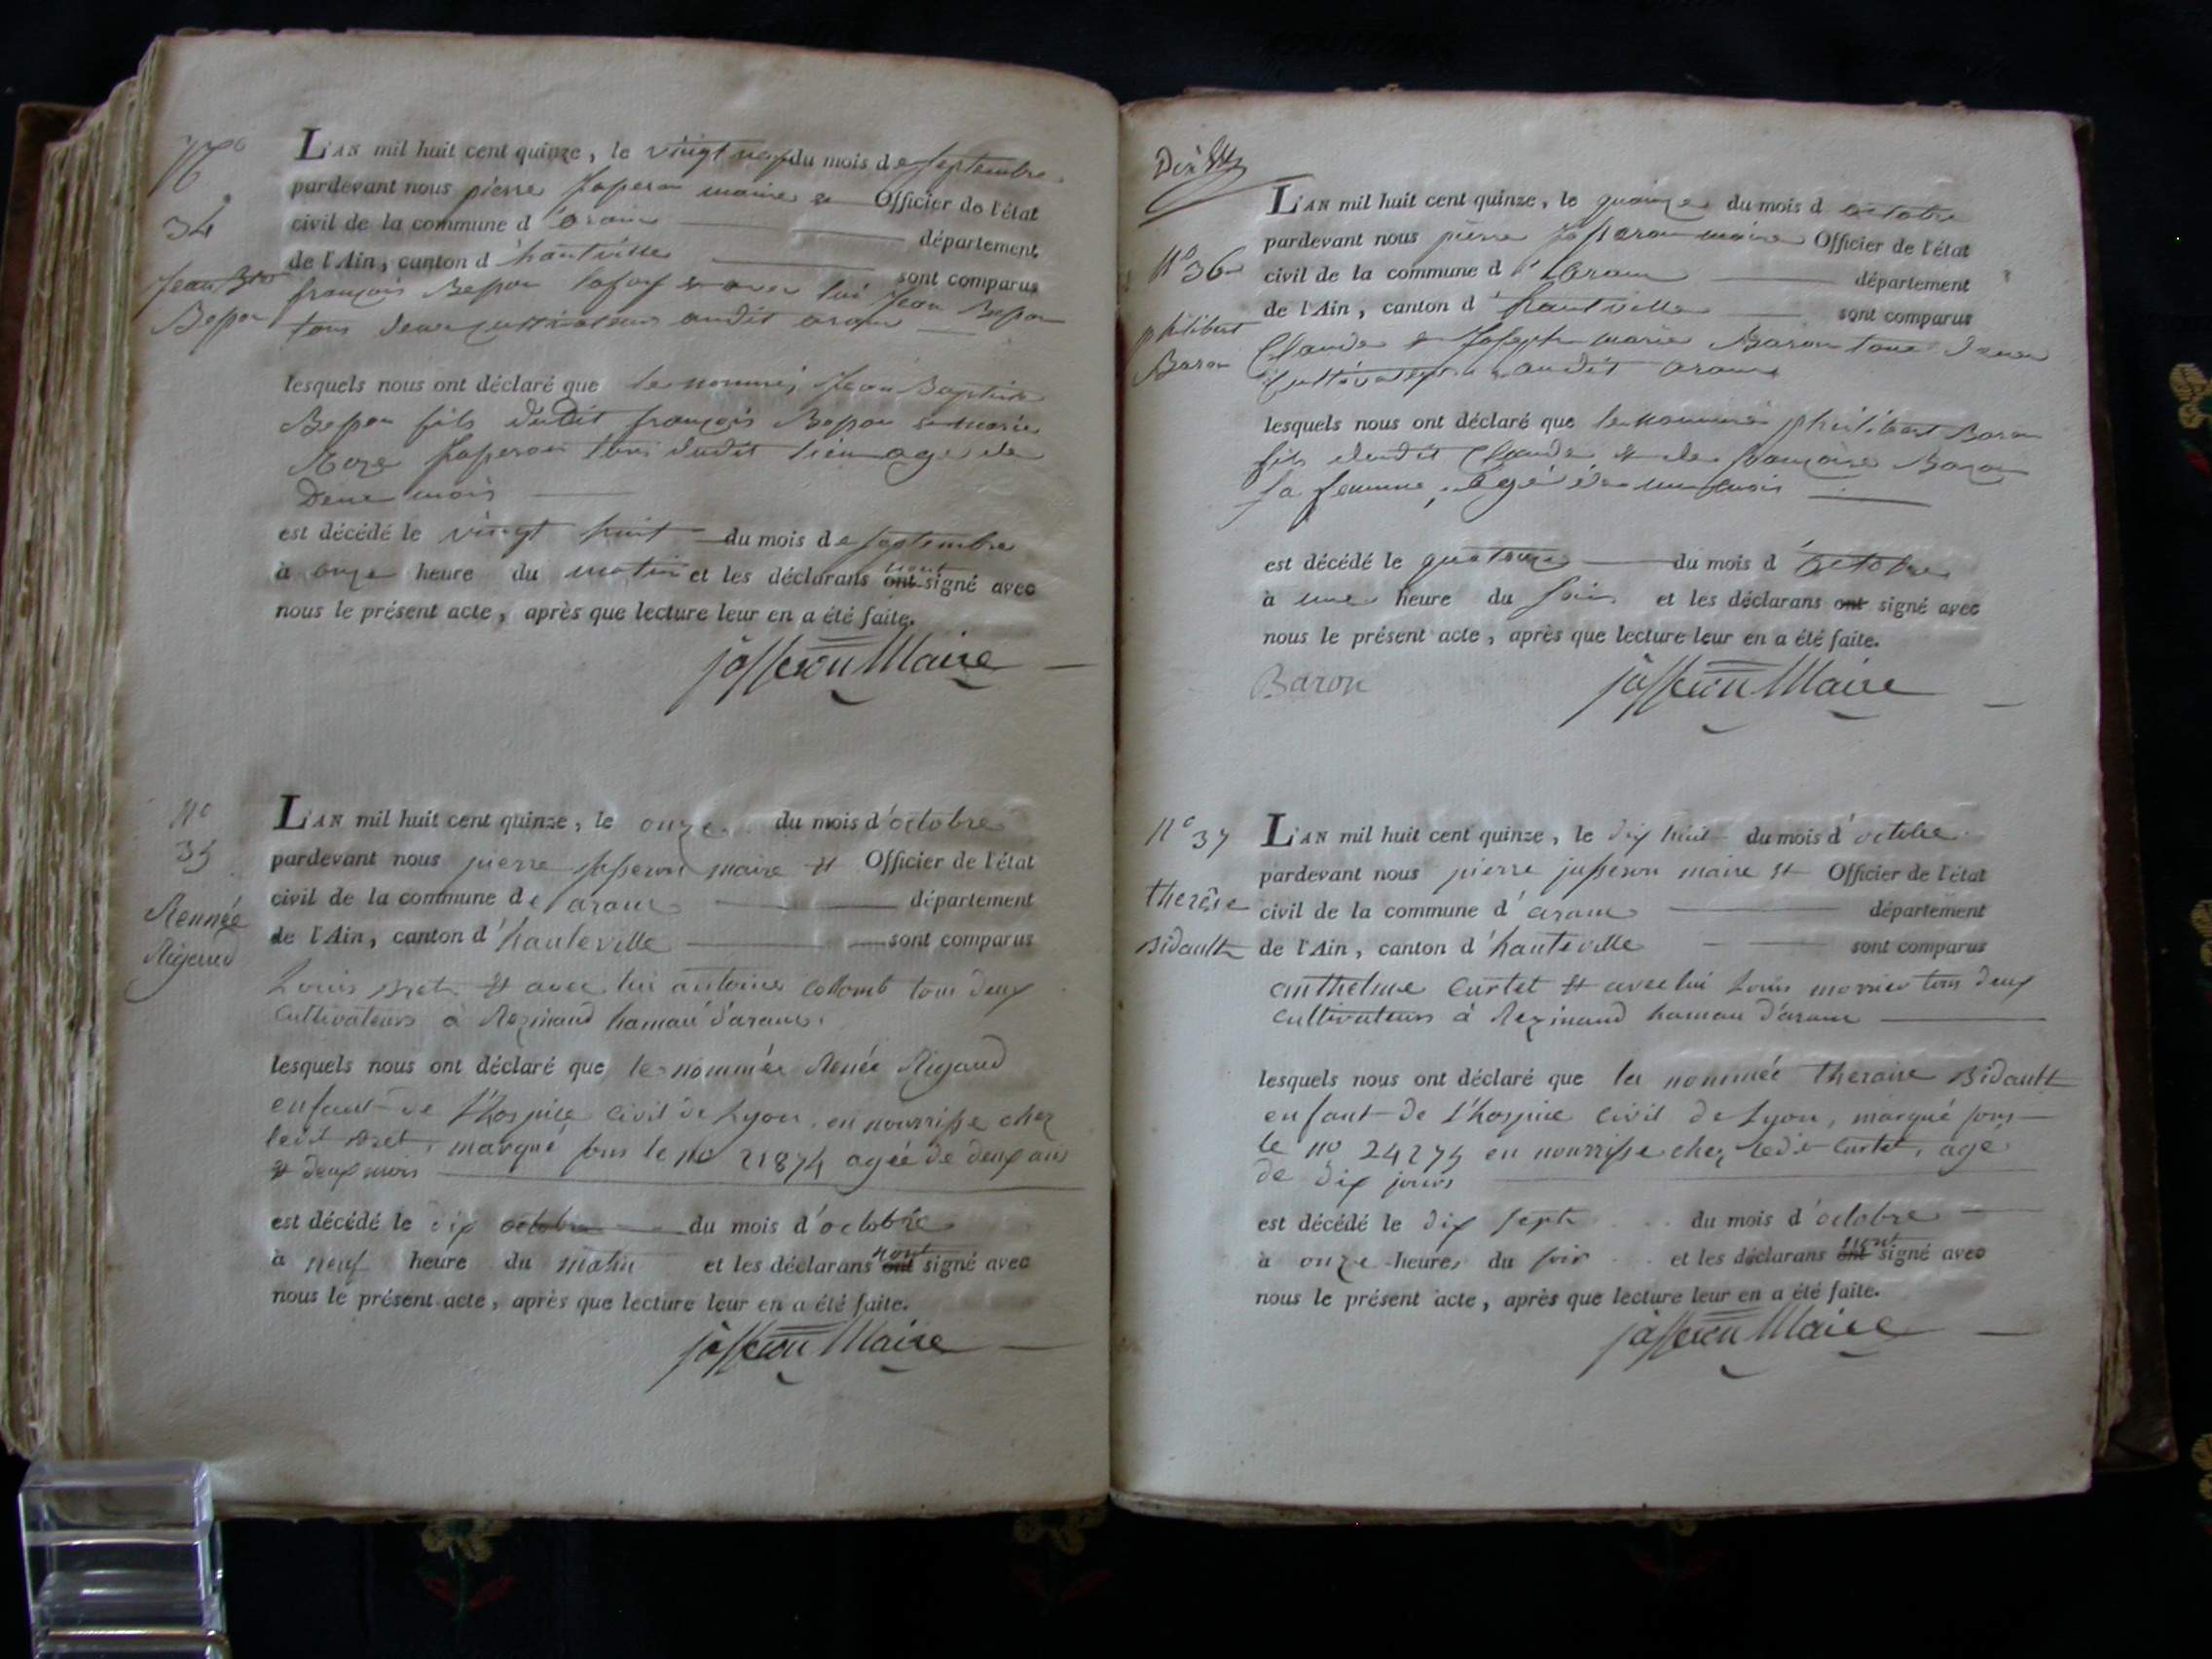 N°
34
Jean Bte
Bepon
L'AN mil huit cent quinze, le vingt neuf du mois de septembre
pardevant nous pierre Josseron maire & Officier de l'état
civil de la commune d'aranc département
de l'Ain, canton d'hautville sont comparus
françois Bepon & avec lui Jean Bepon
tous deux cultivateurs audit aranc
lesquels nous ont déclaré que le nommé Jean Baptiste
Bepon fils dudit françois Bepon & marie
Roze Josseron tous dudit lieu age de
Deux mois
est décédé le vingt huit du mois de septembre
à onze heure du matin et les déclarans ont nont signé avec
nous le présent acte, après que lecture leur en a été faite.
josseron Maire
N°
35
Rennée
Rigaud
L'AN mil huit cent quinze, le onze du mois d'octobre
pardevant nous pierre josseron maire & Officier de l'état
civil de la commune de aranc département
de l'Ain, canton d'hauteville sont comparus
Louis Bret & avec lui antoine Collomb tous deux
cultivateurs à Rezinand hamau d'aranc.
lesquels nous ont déclaré que le nommée Renée Rigaud
enfant de l'hospice civil de Lyon, en nourrisse chez
ledit Bret, marqué sous le no 21874 agée de deux ans
& deux mois
est décédé le dix octobre du mois d'octobre
à neuf heure du matin et les déclarans ont nont signé avec
nous le présent acte, après que lecture leur en a été faite.
josseron Maire
Dix
N° 36
philibert
Baron
L'AN mil huit cent quinze, le quinze du mois d octobre
pardevant nous pierre Josseron maire Officier de l'état
civil de la commune d'aranc département
de l'Ain, canton d'hautville sont comparus
Claude & Joseph marie Baron tous deux
cultivateurs audit aranc
lesquels nous ont déclaré que le nommé philibert Baron
fils dudit Claude & de françoise Baron
sa femme, agé de un mois
est décédé le quatorze du mois d'octobre
à une heure du soir et les déclarans ont signé avec
nous le présent acte, après que lecture leur en a été faite.
Baron josseron Maire
N° 37
therèse
Bidault
L'AN mil huit cent quinze, le dix huit du mois d'octobre
pardevant nous pierre josseron maire & Officier de l'état
civil de la commune d'aranc département
de l'Ain, canton d'hauteville sont comparus
anthelme Curtet & avec lui Louis monnier tous deux
cultivateurs à Rezinand hamau d'aranc
lesquels nous ont déclaré que la nommée theraise Bidault
enfant de l'hospice civil de Lyon, marqué sous
le no 24275 en nourrisse chez ledit Curtet, agé
de dix jours
est décédé le dix sept du mois d'octobre
à onze heures du soir et les déclarans ont nont signé avec
nous le présent acte, après que lecture leur en a été faite.
josseron Maire